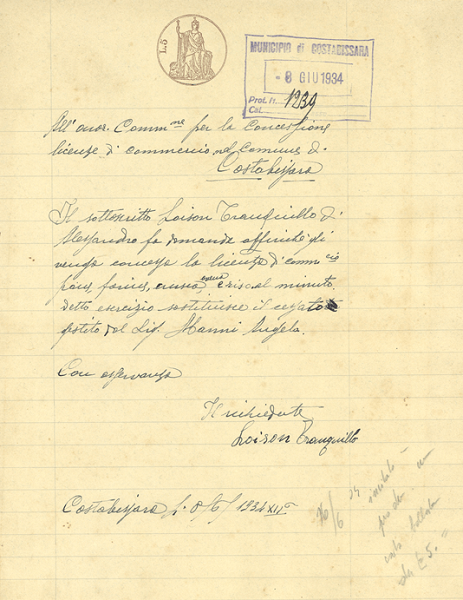 L.5
MUNICIPIO di COSTABISSARA
- 8 GIU 1934
Prot. N. 1239
Cat.
All' onor. Comm.ne per la Concessione
licenze di commercio nel Comune di
Costabissara
Il sottoscritto Loison Tranquillo di
Alessandro fa domanda affinché gli
venga concessa la licenza di comm.cio
pane, farina, crusca e riso al minuto
detto esercizio sostituisce il cessato
gestito dal Sig. Manni Angelo.
Con osservanza
Il richiedente
Loison Tranquillo
Costabissara, li 8/6/1934 XII°
16/6